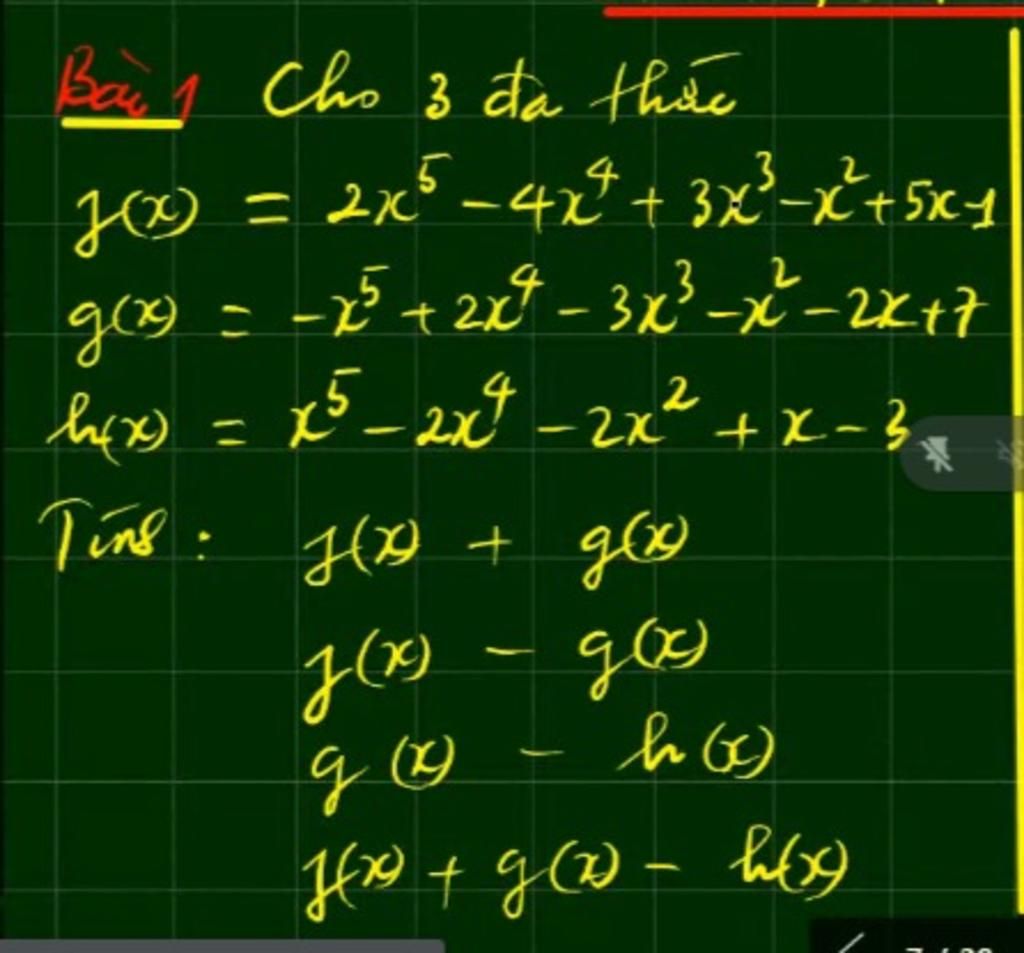 Bài 1 Cho 3 đa thức
f(x) = 2x⁵ - 4x⁴ + 3x³ - x² + 5x - 1
g(x) = -x⁵ + 2x⁴ - 3x³ - x² - 2x + 7
h(x) = x⁵ - 2x⁴ - 2x² + x - 3
Tính : f(x) + g(x)
f(x) - g(x)
g(x) - h(x)
f(x) + g(x) - h(x)